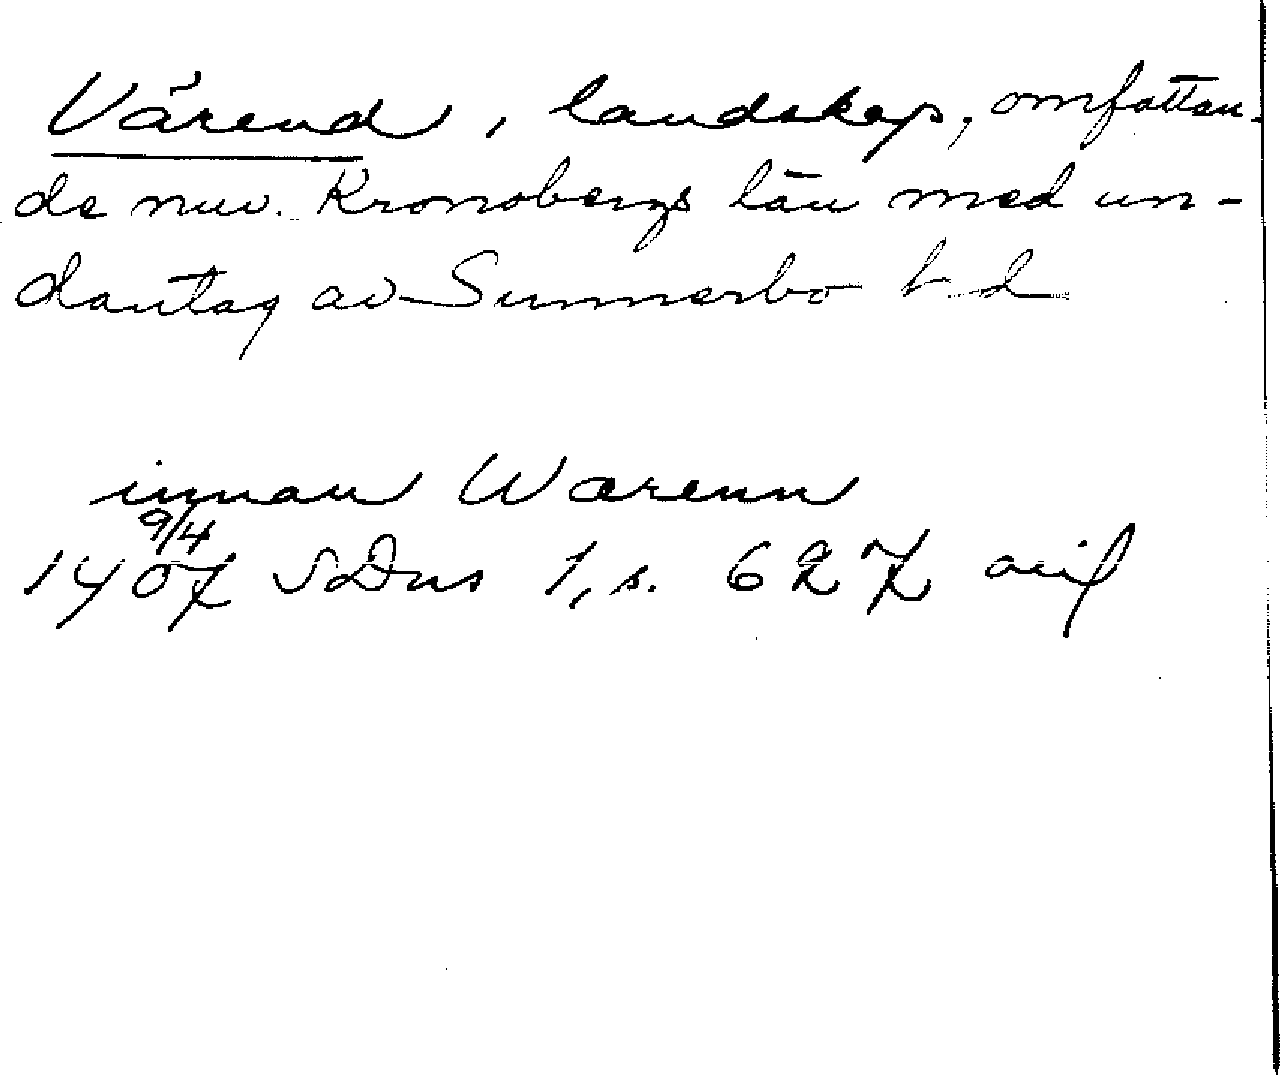 Värend, landskap, omfattan-
de nuv. Kronobergs län med un-
dantag av Sunnerbo hd
innan Warenn
9/4
1407 SDns 1, s. 627 avif